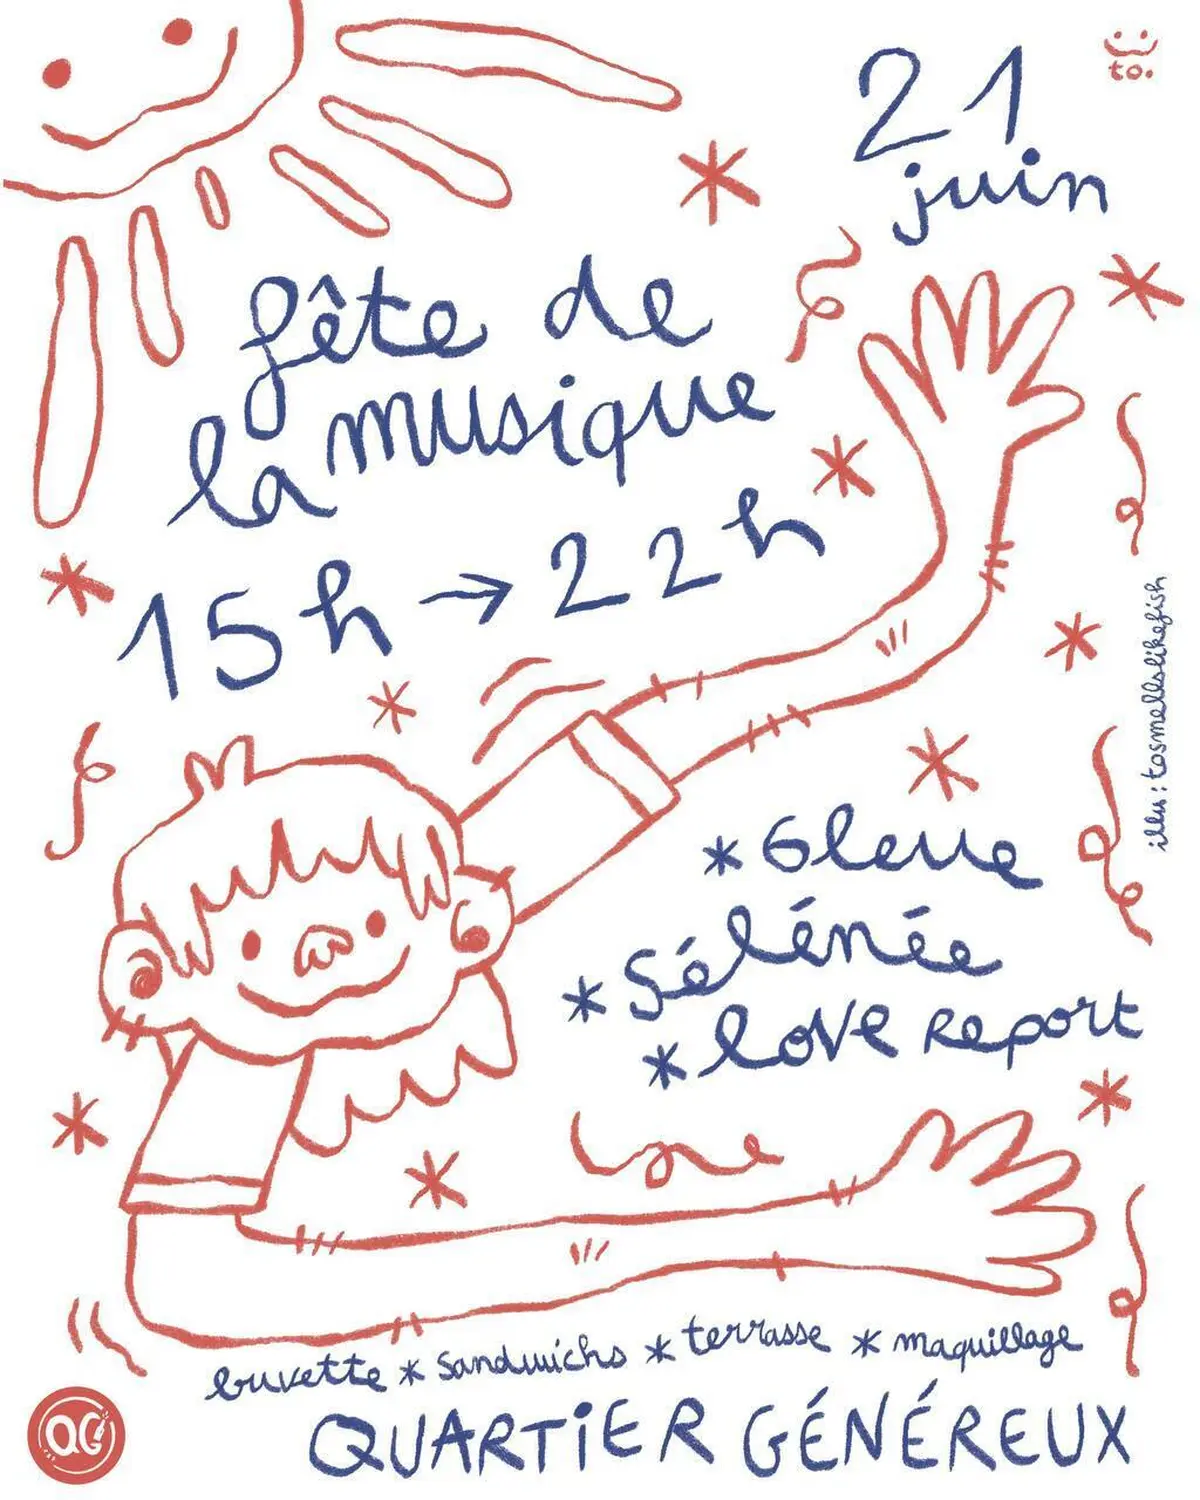 21
juin
to.
fête de
la musique
15h → 22h
illu: tosmellslikefish
* Gleue
Sélénée
* love report
buvette * sandwichs * terrasse * maquillage
QG
QUARTIER GÉNÉREUX